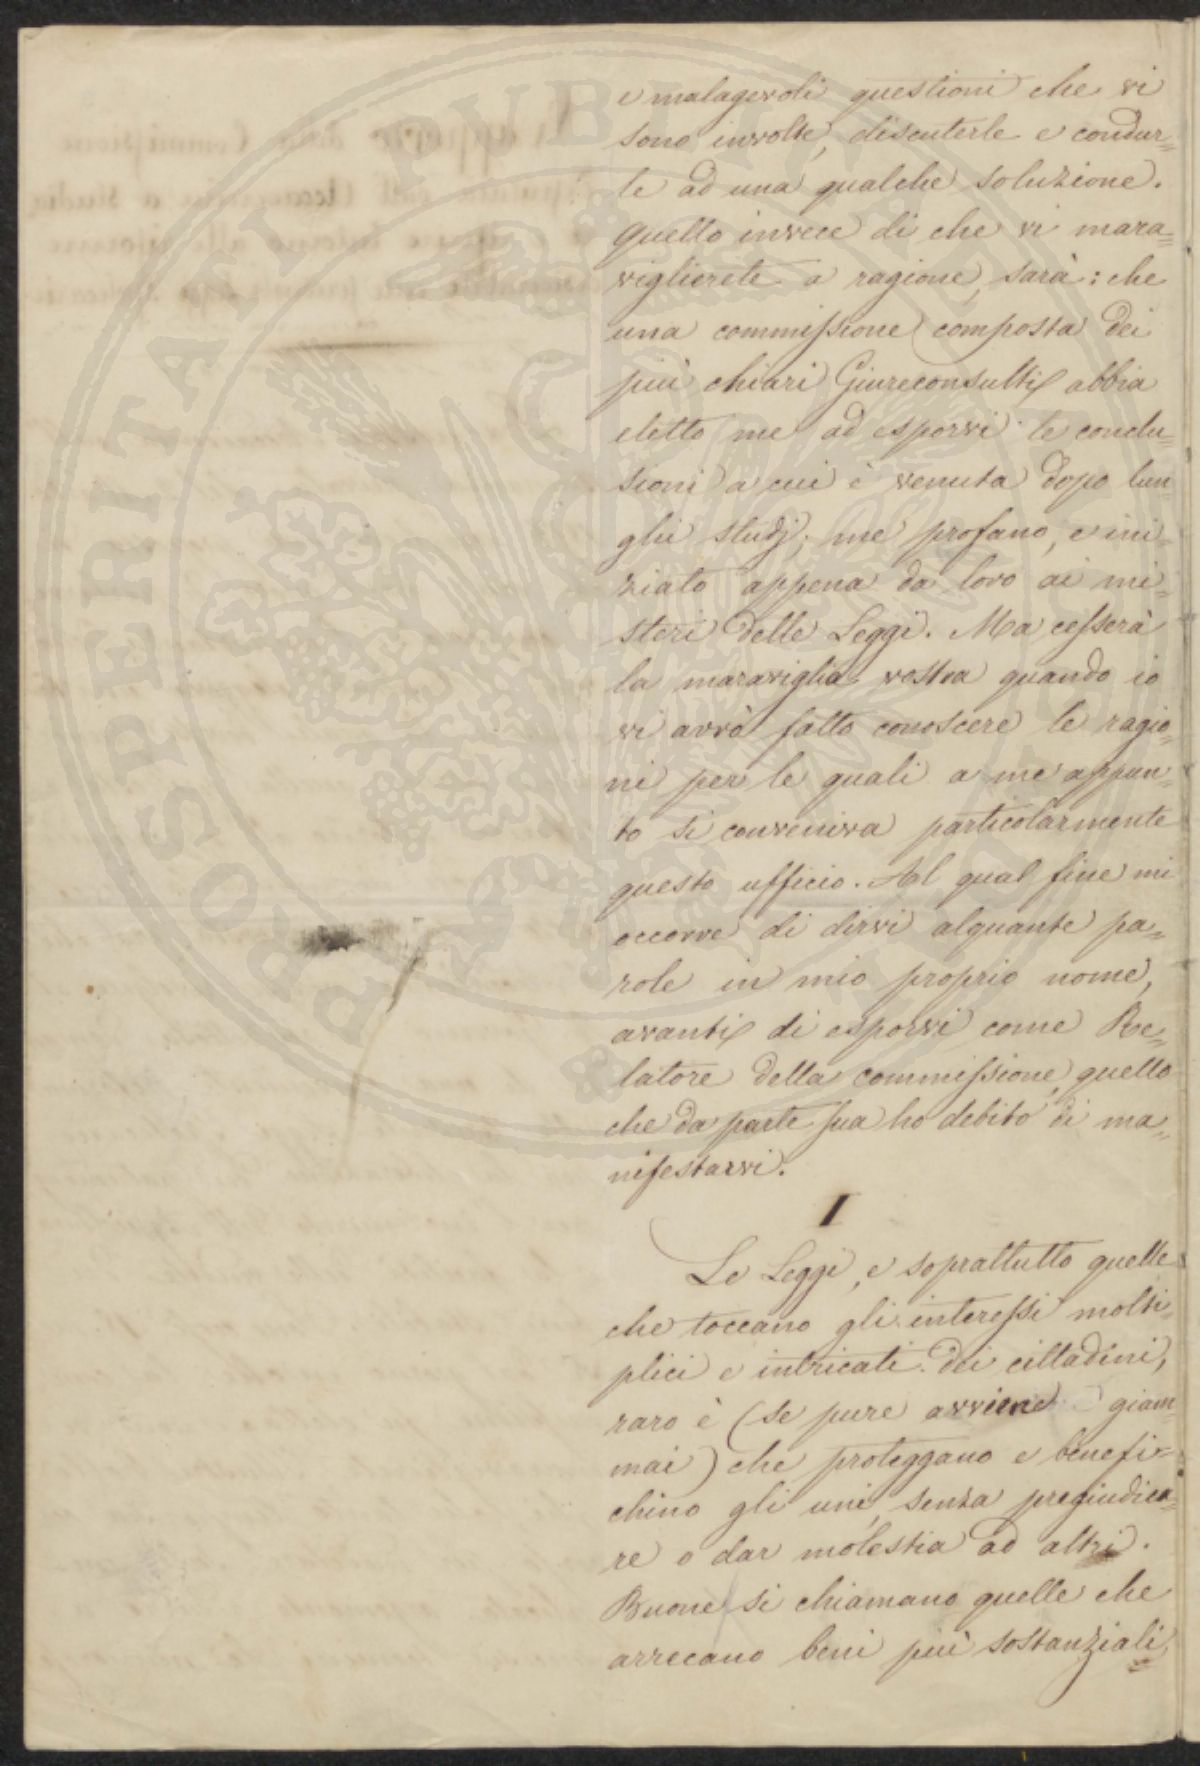 e malagevoli questioni che vi
sono involte, discuterle e condur=
le ad una qualche soluzione.
Quello invece di che vi mara=
viglierete a ragione, sarà: che
una commissione composta dei
più chiari Giureconsulti abbia
eletto me ad esporvi le conclu=
sioni a cui è venuta dopo lun=
ghi studj; me profano, e ini=
ziato appena da loro ai mi=
steri delle Leggi. Ma cesserà
la maraviglia vostra quando io
vi avrò fatto conoscere le ragio=
ni per le quali a me appun=
to si conveniva particolarmente
questo ufficio. Al qual fine mi
occorre di dirvi alquante pa=
role in mio proprio nome,
avanti di esporvi come Re=
latore della commissione, quello
che da parte sua ho debito di ma=
nifestarvi.
I
Le Leggi, e soprattutto quelle
che toccano gli interessi molti=
plici e intricati dei cittadini,
raro è (se pure avviene giam=
mai) che proteggano e benefi=
chino gli uni, senza pregiudica=
re o dar molestia ad altri.
Buone si chiamano quelle che
arrecano beni più sostanziali,
PROSPERITATI PUBLICAE